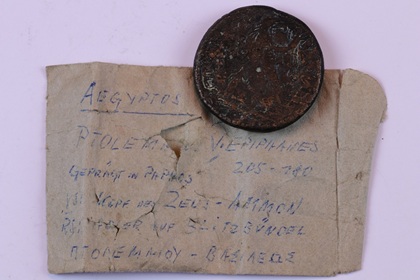 AEGYPTOS
PTOLEMAIOS V. EPIPHANES
GEPRÄGT IN PAPHOS 205-180
KOPF DES ZEUS-AMMON
AUF BLITZBÜNDEL
ΠΤΟΛΕΜΑΙΟΥ - ΒΑΣΙΛΕΩΣ